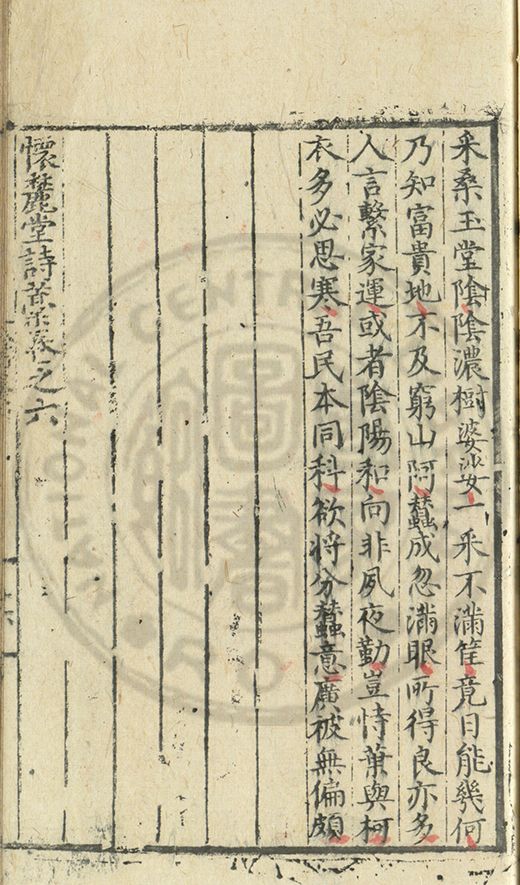 采桑玉堂陰陰濃樹婆娑一采不滿筐竟日能幾何
乃知富貴地不及窮山阿蠶成忽滿眼所得良亦多
人言繫家運或者陰陽和向非夙夜勤豈恃葉與柯
衣多必思寒吾民本同科欲將分蠶意廣被無偏頗
懷麓堂詩藁卷之六